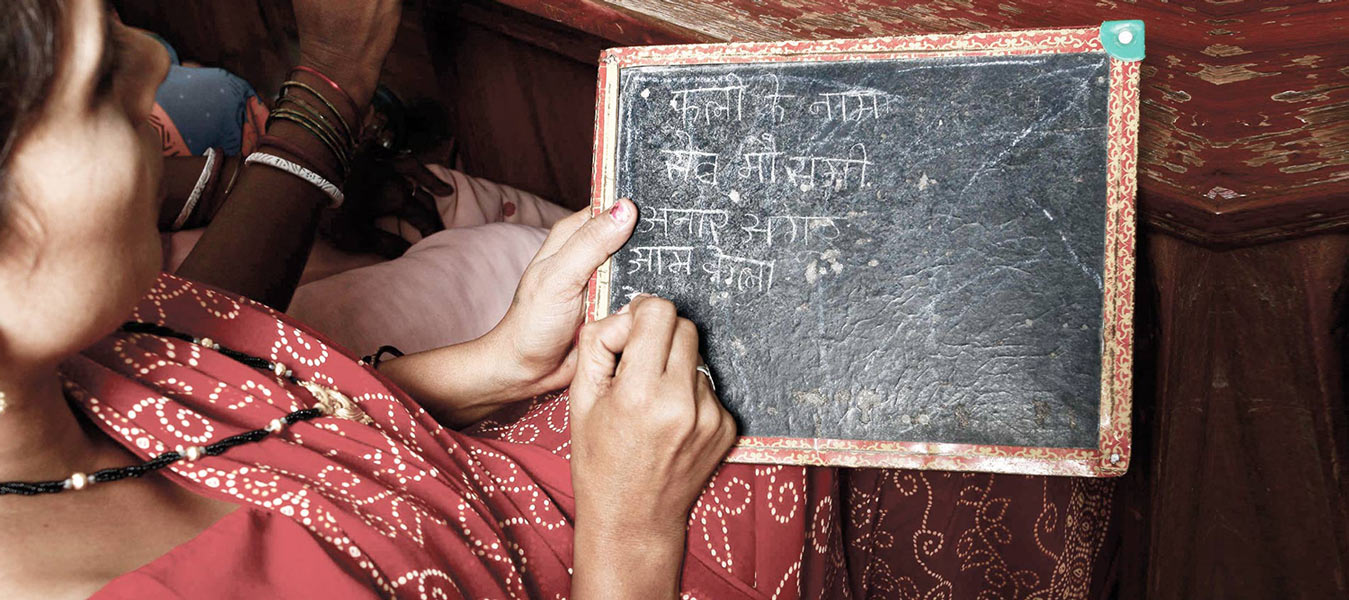 फलो के नाम
सेव मौसमी
अनार
आम केला